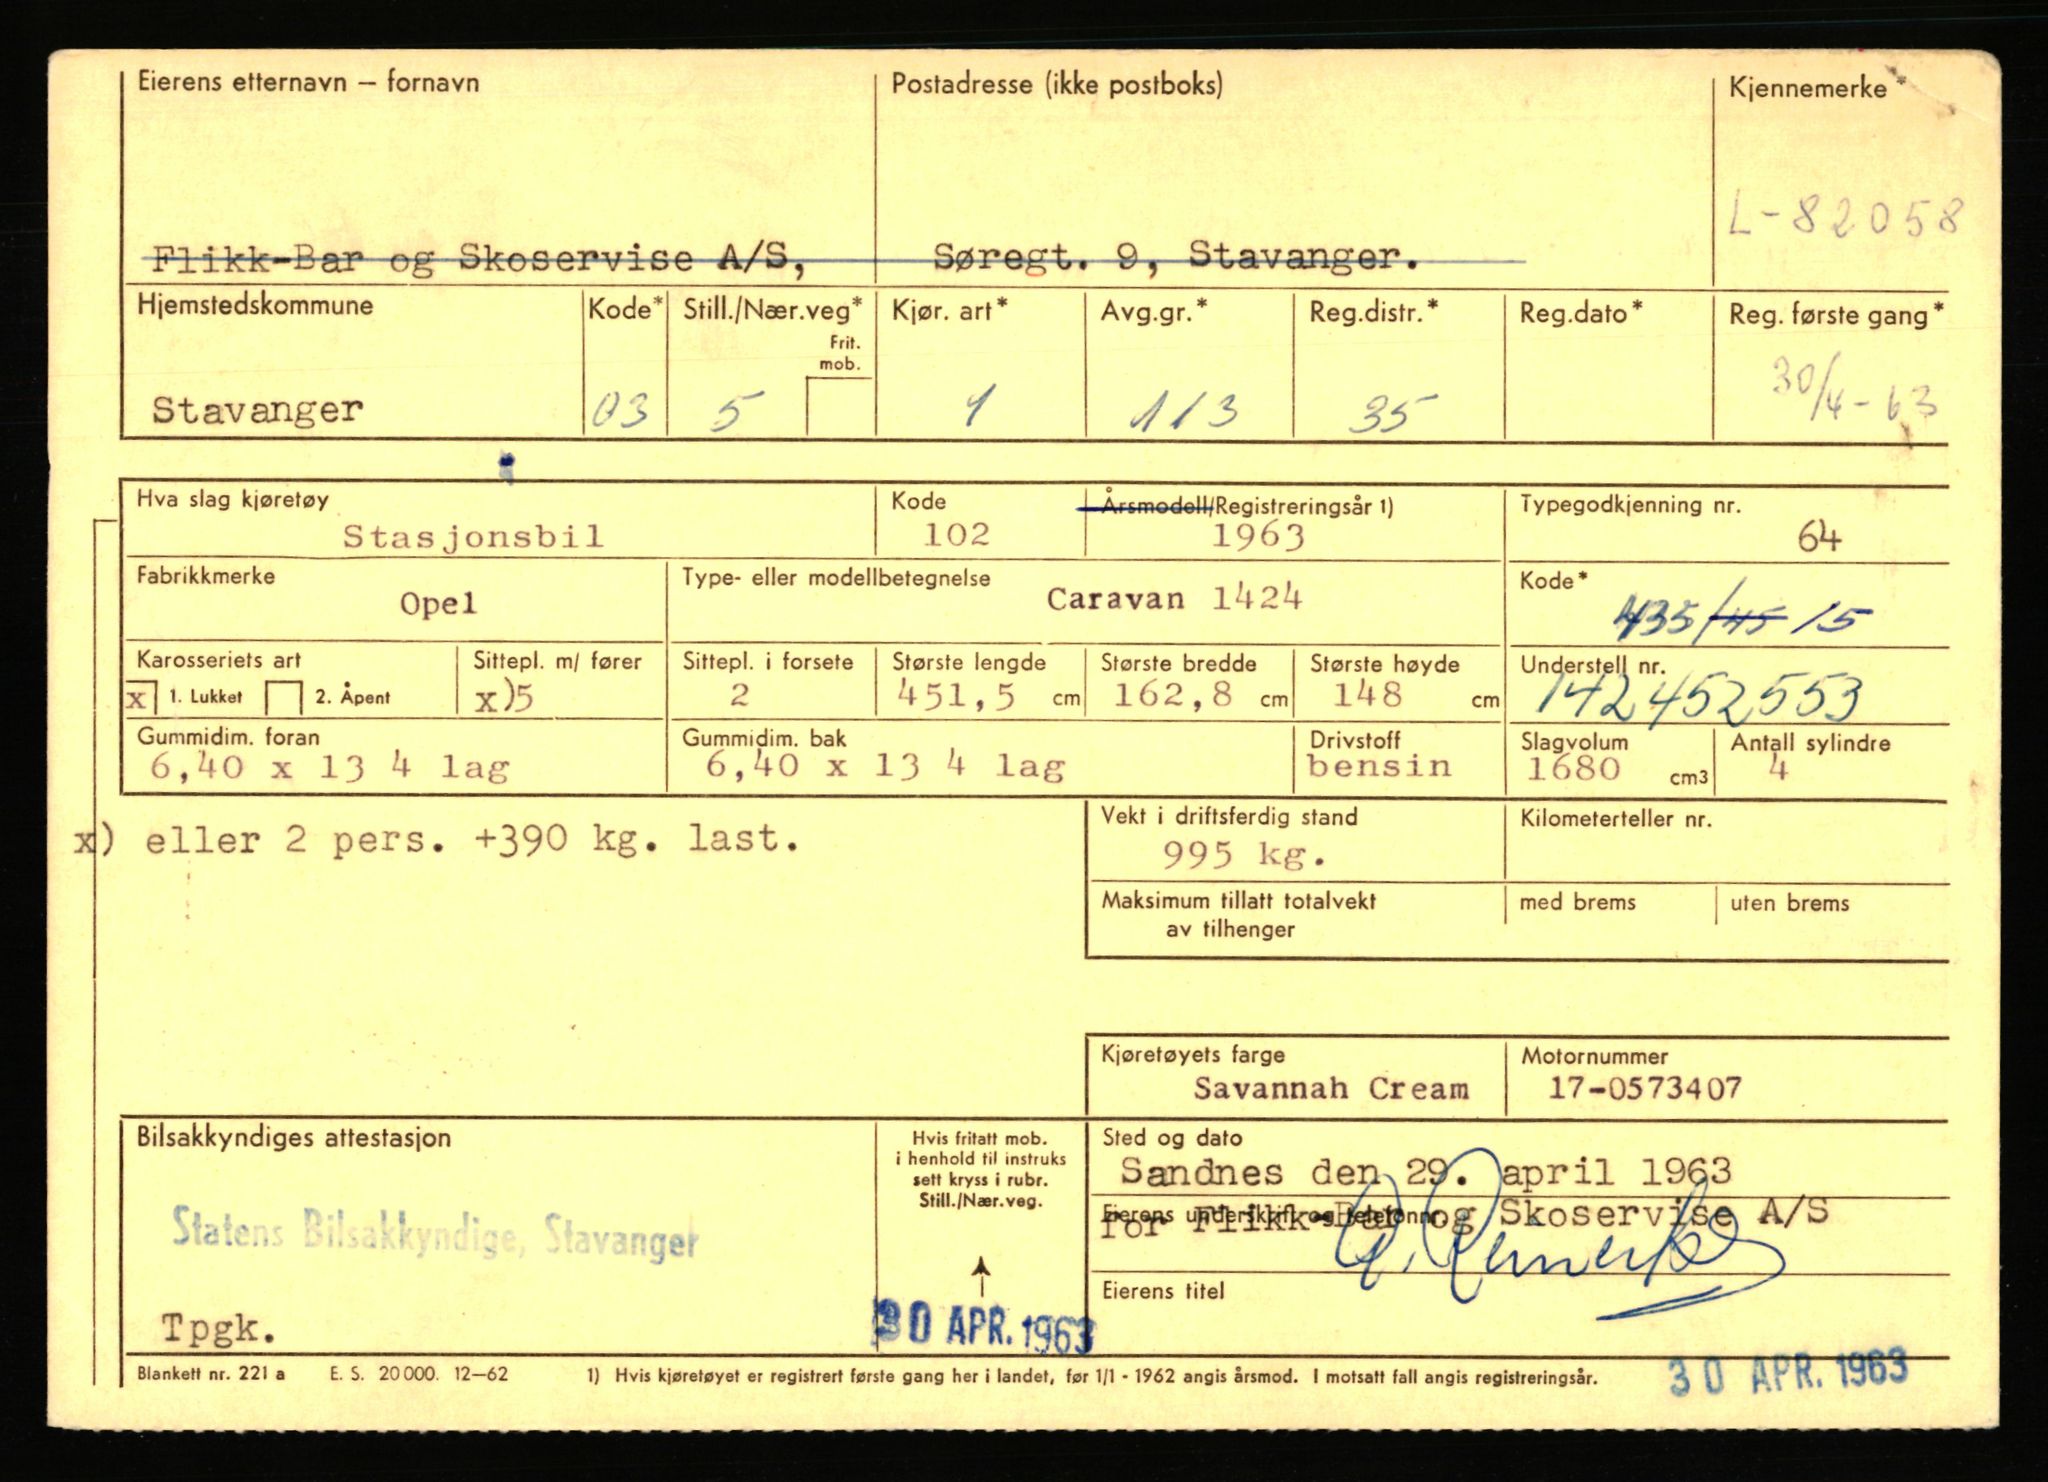 Eierens etternavn – fornavn
Postadresse (ikke postboks)
Kjennemerke*
L-82058
Flikk-Bar og Skoservise A/S,
Søregt. 9, Stavanger.
Hjemstedskommune
Kode*
Still./Nær.veg*
Frit. mob.
Kjør. art*
Avg.gr.*
Reg.distr.*
Reg.dato*
Reg. første gang*
Stavanger
03
5
1
113
35
30/4-63
Hva slag kjøretøy
Stasjonsbil
Kode
102
Årsmodell/Registreringsår 1)
1963
Typegodkjenning nr.
64
Fabrikkmerke
Opel
Type- eller modellbetegnelse
Caravan 1424
Kode*
435/45 15
Karosseriets art
x 1. Lukket 2. Åpent
Sittepl. m/ fører
x)5
Sittepl. i forsete
2
Største lengde
451,5 cm
Største bredde
162,8 cm
Største høyde
148 cm
Understell nr.
142452553
Gummidim. foran
6,40 x 13 4 lag
Gummidim. bak
6,40 x 13 4 lag
Drivstoff
bensin
Slagvolum
1680 cm3
Antall sylindre
4
x) eller 2 pers. +390 kg. last.
Vekt i driftsferdig stand
995 kg.
Kilometerteller nr.
Maksimum tillatt totalvekt
av tilhenger
med brems
uten brems
Kjøretøyets farge
Savannah Cream
Motornummer
17-0573407
Bilsakkyndiges attestasjon
Statens Bilsakkyndige, Stavanger
Tpgk.
Hvis fritatt mob.
i henhold til instruks
sett kryss i rubr.
Still./Nær.veg.
30 APR. 1963
Sted og dato
Sandnes den 29. april 1963
Eierens underskrift og telefonnr.
for Flikk-Bar og Skoservise A/S
Eierens titel
Blankett nr. 221 a E. S. 20 000. 12–62
1) Hvis kjøretøyet er registrert første gang her i landet, før 1/1 - 1962 angis årsmod. I motsatt fall angis registreringsår.
30 APR. 1963